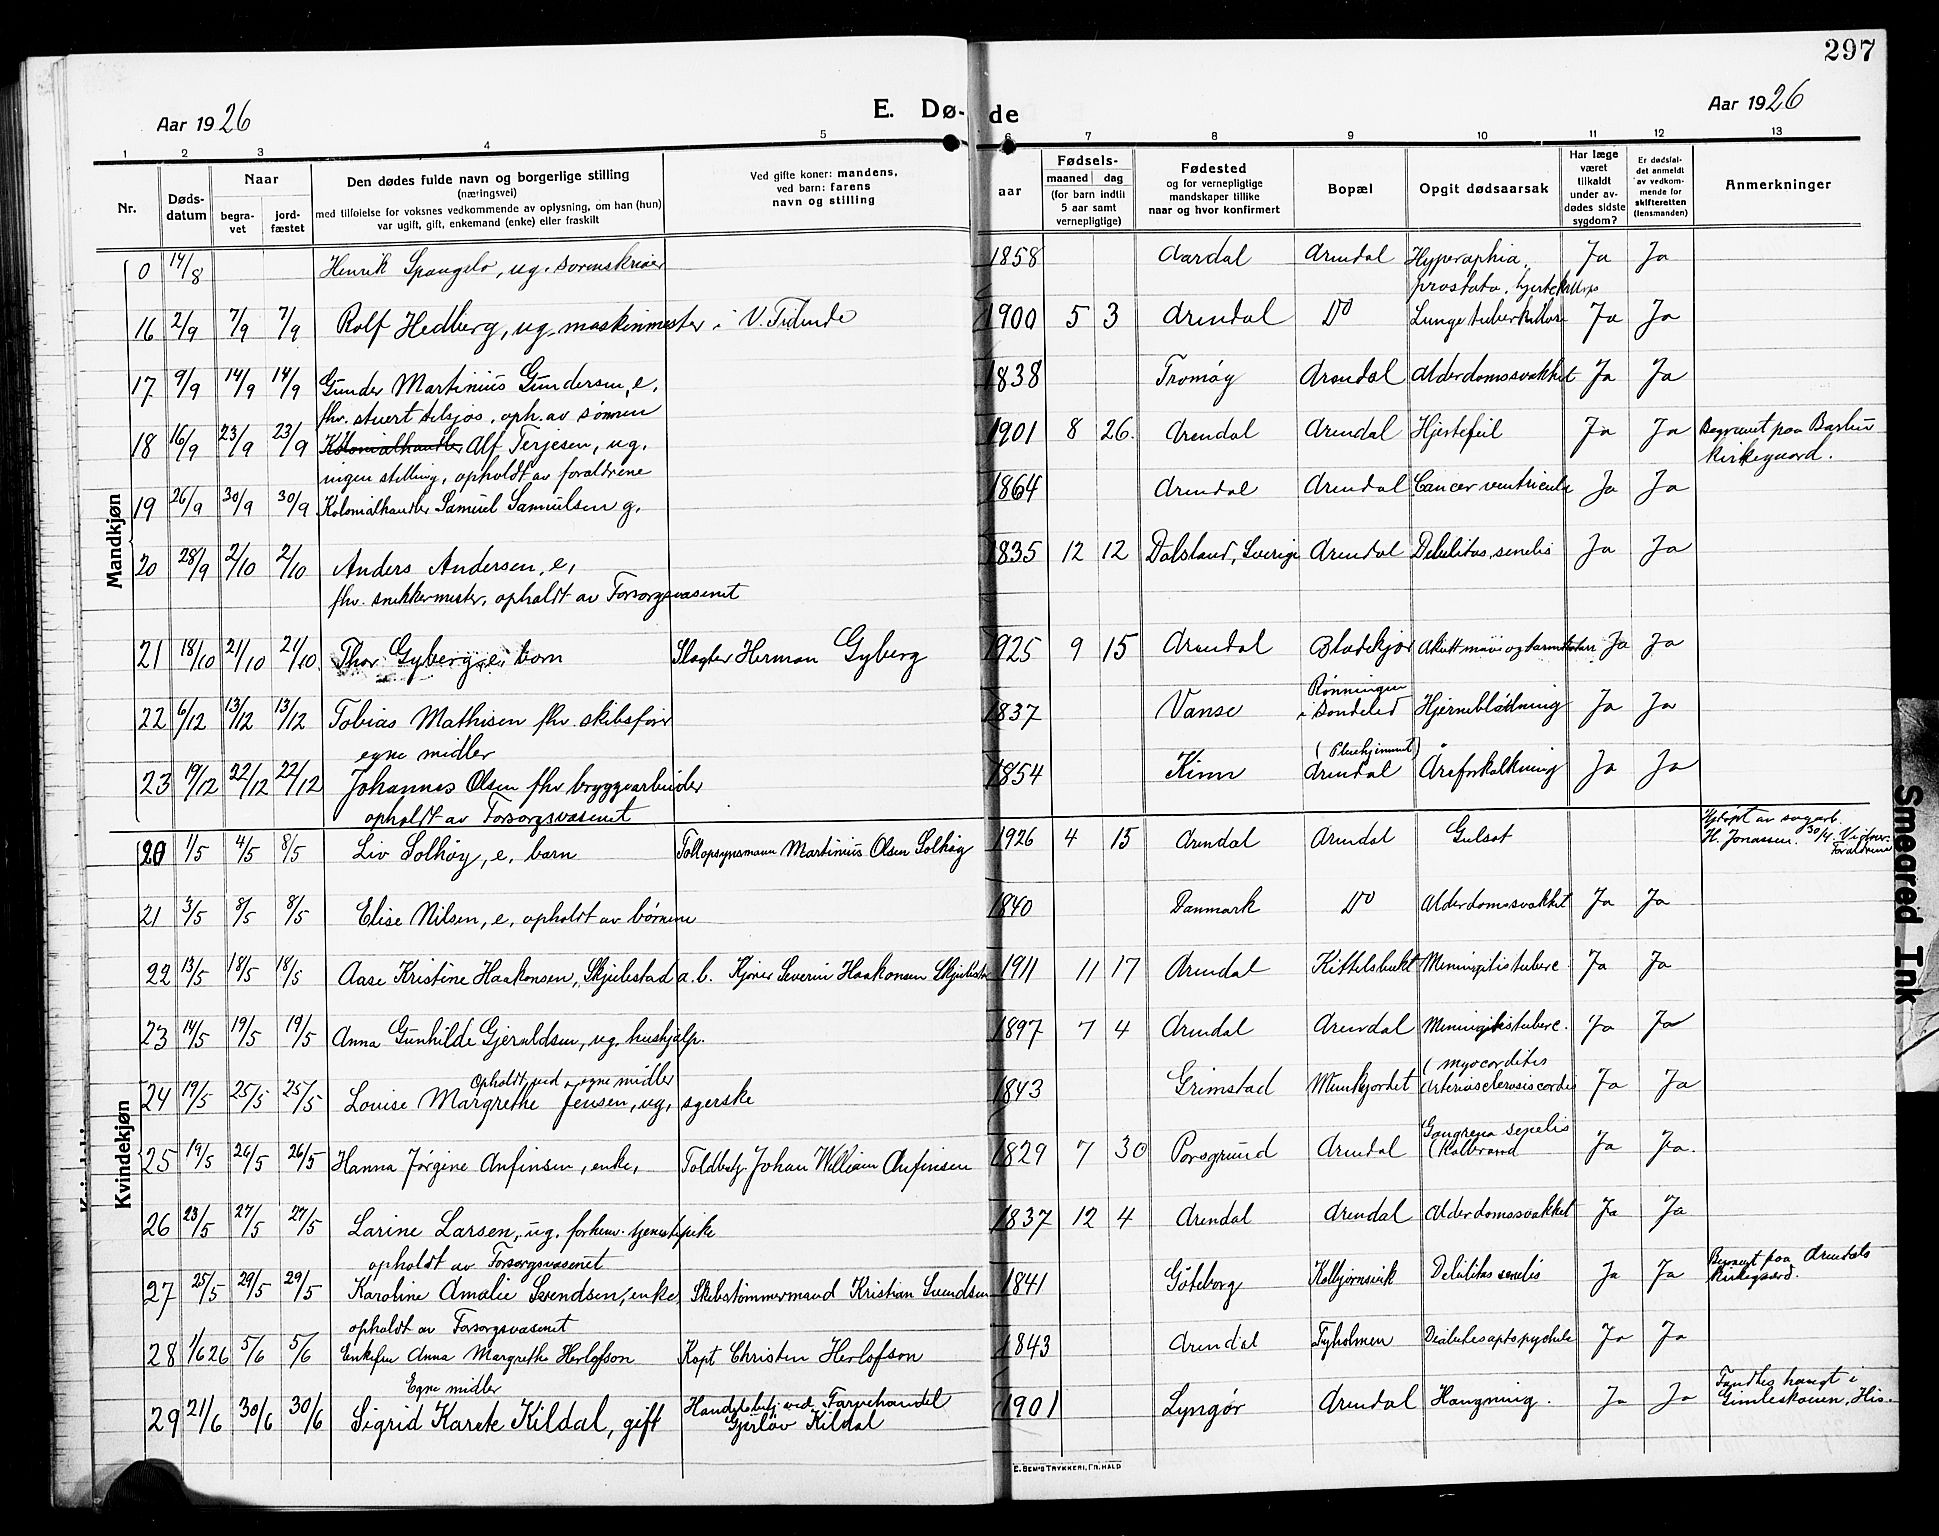 297
Aar 1926 E. Dø- de Aar 1926
1 2 3 4 5 6 7 8 9 10 11 12 13
Nr. Døds-datum Naar begra-vet jord-fæstet Den dødes fulde navn og borgerlige stilling (næringsvei) med tilføielse for voksnes vedkommende av oplysning, om han (hun) var ugift, gift, enkemand (enke) eller fraskilt Ved gifte koner: mandens, ved barn: farens navn og stilling aar Fødsels- maaned dag (for barn indtil 5 aar samt vernepligtige) Fødested og for vernepligtige mandskaper tillike naar og hvor konfirmert Bopæl Opgit dødsaarsak Har læge været tilkaldt under av-dødes sidste sygdom? Er dødsfal-det anmeldt av vedkom-mende for skifteretten (lensmanden) Anmerkninger
Mandkjøn
0 14/8 Henrik Spangelo, ug. sorenskriver 1858 Aardal Arendal Hyperaphia prostata, Ja Ja
16 2/9 7/9 7/9 Rolf Hedberg, ug. maskinmester i V. Tidende 1900 5 3 Arendal Do Lungetuberkulose Ja Ja
17 9/9 14/9 14/9 Gunder Martinius Gundersen, e. 1838 Tromøy Arendal Alderdomssvakhet Ja Ja
fhv. stuert tilsjøs, oph. av sønnen
18 16/9 23/9 23/9 Kolonialhandler Alf Terjesen, ug. 1901 8 26. Arendal Arendal Hjertefeil Ja Ja Begravet paa Barbu kirkegaard.
ingen stilling, opholdt av forældrene
19 26/9 30/9 30/9 Kolonialhandler Samuel Samuelsen g. 1864 Arendal Arendal Cancer ventricula Ja Ja
20 28/9 2/10 2/10 Anders Andersen, e, 1835 12 12 Dalsland, Sverige Arendal Debilitas senilis Ja Ja
fhv. snekkermester, opholdt av Forsorgsvæsenet
21 18/10 21/10 21/10. Thor Gyberg, e. barn Slagter Herman Gyberg 1925 9 15 Arendal Blødekjær Akutt mave og tarmkatarr Ja Ja
22 6/12 13/12 13/12 Tobias Mathisen fhv. skibsfører 1837 Vanse Rønningen i Søndeled Hjerneblødning Ja Ja
egne midler
23 19/12 22/12 22/12 Johannes Olsen fhv bryggearbeider 1854 Kinn (Pleiehjemmet) Arendal Åreforkalkning Ja Ja
opholdt av Forsorgsvæsenet
Kvindekjøn
20 1/5 4/5 8/5 Liv Solhøy, e. barn Tollopsynsmann Martinius Olsen Solhøy 1926 4 15 Arendal Arendal Gulsot Hjdøpt av H. Jonassen. 30/4 Vidner: Forældrene
21 3/5 8/5 8/5 Elise Nilsen, e, opholdt av børnene 1840 Danmark Do Alderdomssvakhet Ja Ja
22 13/5 18/5 18/5 Aase Kristine Haakonsen, Skjulestad a.b. Severin Haakonsen Skjulestad 1911 11 17 Arendal Kittelsbukt Meningitis tuberc Ja Ja
23 14/5 19/5 19/5 Anna Gunhilde Gjeruldsen, ug, hushjelp. 1897 7 4 Arendal Arendal Meningitis tuberc. Ja Ja
Opholdt ved egne midler
24 19/5 25/5 25/5 Louise Margrethe Jensen, ug, syerske 1843 Grimstad Munkejordet (myocorditis Arteriosclerosis cordis Ja Ja
25 19/5 26/5 26/5 Hanna Jørgine Anfinsen, enke, Toldbetj. Johan William Anfinsen 1829 7 30 Porsgrund Arendal Gangrena senelis (Kolbrand Ja Ja.
26 23/5 27/5 27/5 Larine Larsen, ug. forhenv. tjenestepike 1837 12 4 Arendal Arendal Alderdomssvakhet Ja Ja
opholdt av Forsorgsvæsenet
27 25/5 29/5 29/5 Karoline Amalie Svendsen, enke, Skibstømmermand Kristian Svendsen 1841 Göteborg Kolbjørnsvik Debilitas senelis Ja Ja Begravet paa Arendals kirkegaard.
opholdt av Forsorgsvæsenet
28 1/6 26 5/6 5/6 Enkefru Anna Margrethe Herlofson Kapt Christen Herlofson 1843 Arendal Tyholmen Ja Ja
Egne midler
29 21/6 30/6 30/6 Sigrid Karete Kildal, gift Handelsbetj. ved Farvehandel Gjerløv Kildal 1901 Lyngør Arendal Hangning. Ja Ja Fandtes hængt i Gimleskoien, His.
E. SEM'S TRYKKERI, FR. HALD
Smeared Ink